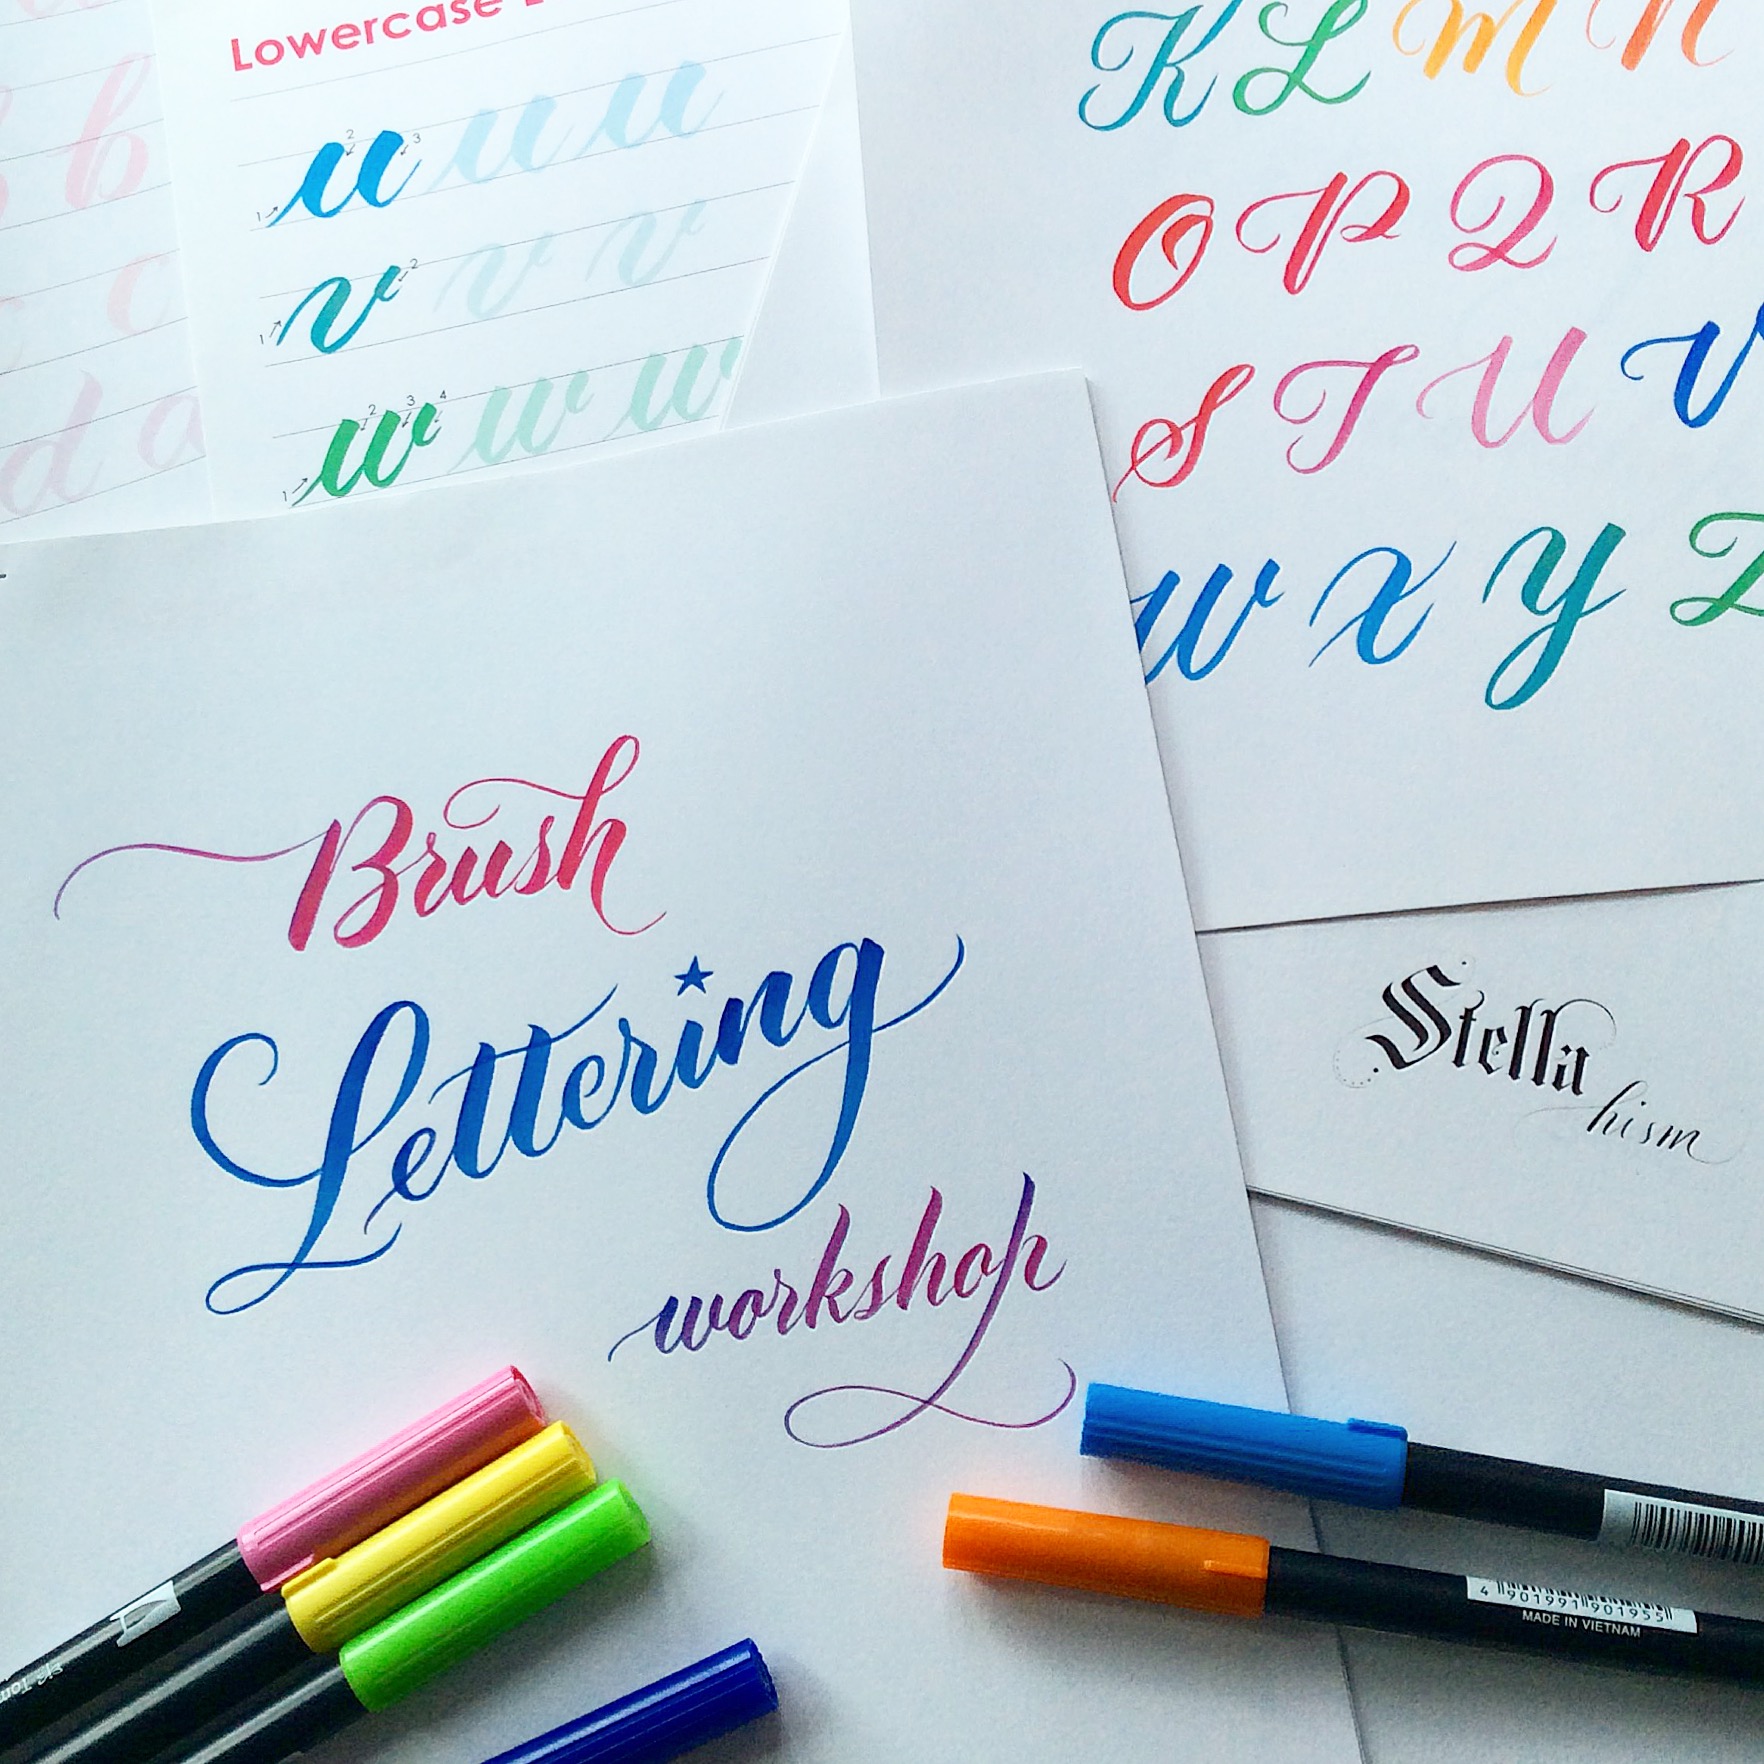 Lowercase
u u u
v v v
w w w
b
c
d a
K L M N
O P Q R
S T U V
W X Y Z
Brush
Lettering
workshop
Stella
hism
4 901991 901955
MADE IN VIETNAM